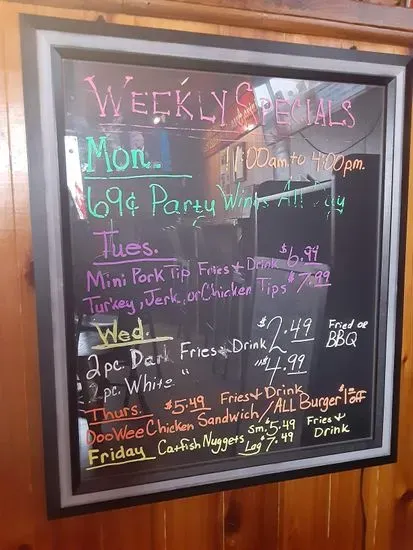 WEEKLY SPECIALS
Mon. 11:00am to 4:00pm.
69¢ Party Wings All Day
Tues.
Mini Pork Tip Fries & Drink $6.94
Turkey, Jerk, or Chicken Tips $7.99
Wed.
2pc. Dark Fries & Drink $2.49 Fried or BBQ
2pc. White " " $4.99
Thurs. $5.49 Fries & Drink
DooWee Chicken Sandwich / ALL Burger $1 off
Friday Catfish Nuggets Sm. $5.49 Fries & Drink
Lag $7.49